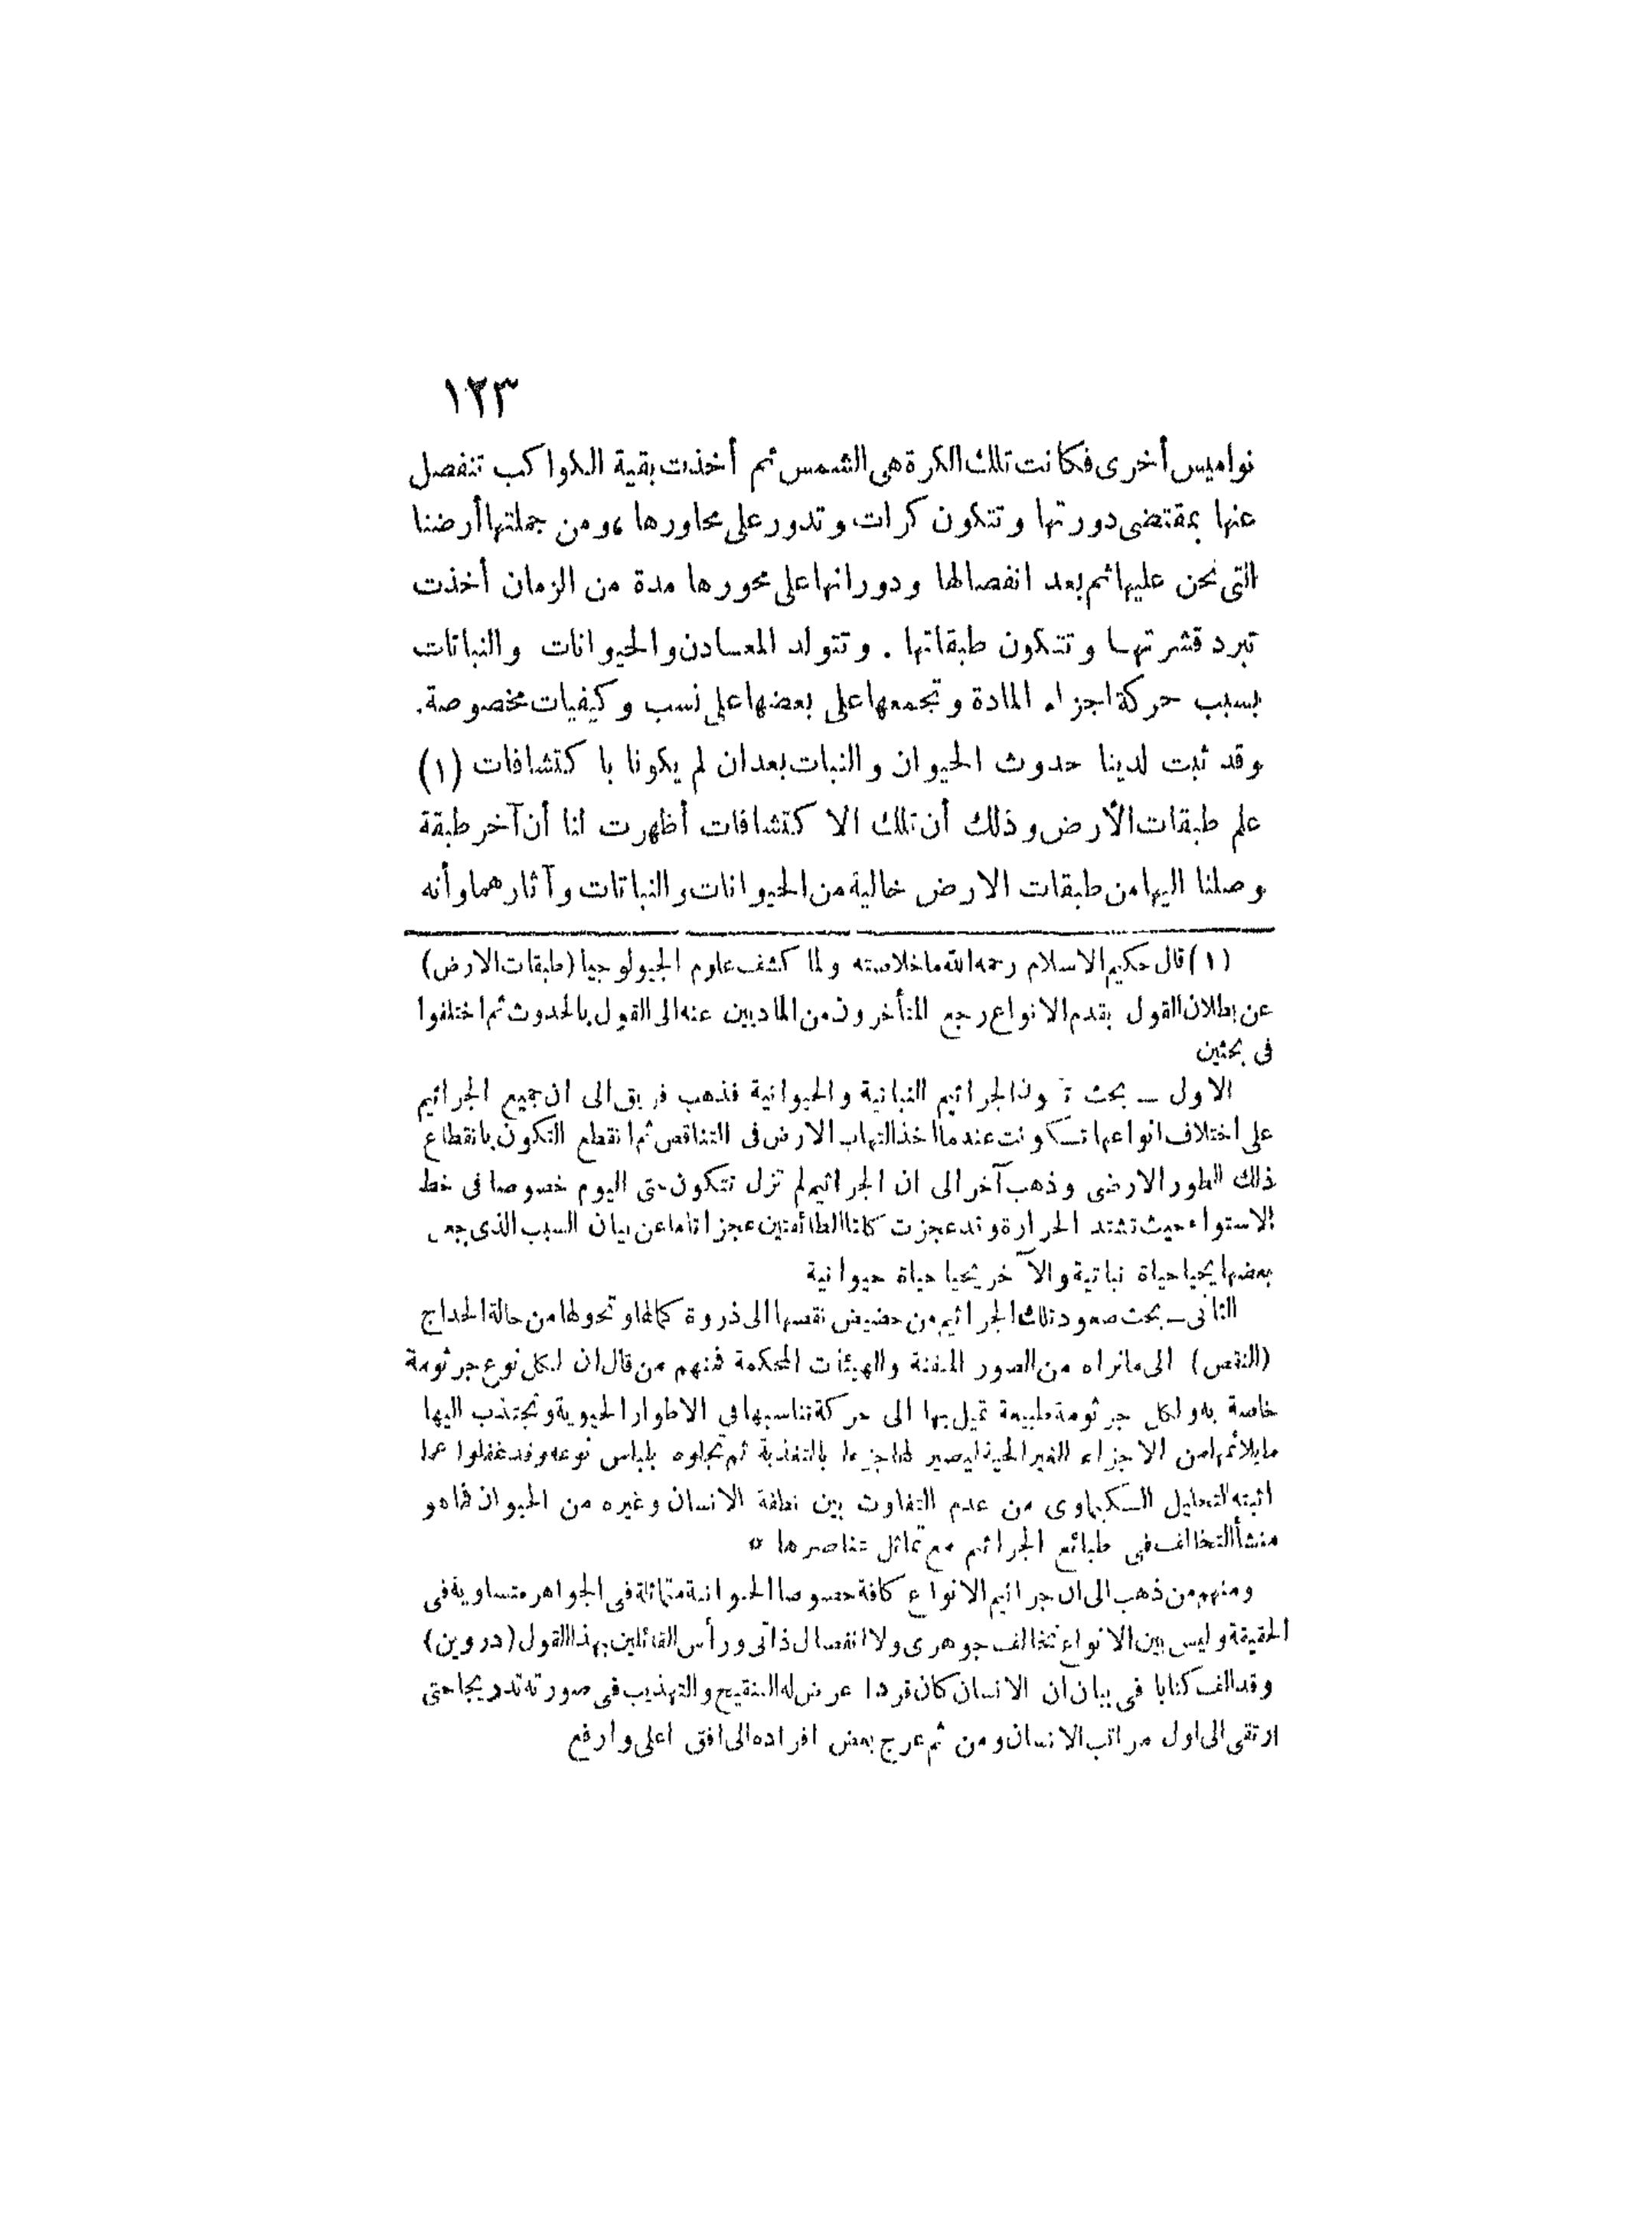 ١٢٣
نواميس أخرى فكانت تلك الكرة هى الشمس ثم أخذت بقية الكواكب تنفصل
عنها بمقتضى دورتها وتتكون كرات وتدور على محاورها ، ومن جملتها أرضنا
التى نحن عليها ثم بعد انفصالها ودورانها على محورها مدة من الزمان أخذت
تبرد قشرتها وتتكون طبقاتها . وتتولد المعادن والحيوانات والنباتات
بسبب حركة اجزاء المادة وتجمعها على بعضها على نسب وكيفيات مخصوصة.
وقد ثبت لدينا حدوث الحيوان والنبات بعد ان لم يكونا باكتشافات (١)
علم طبقات الأرض وذلك أن تلك الاكتشافات أظهرت لنا أن آخر طبقة
وصلنا اليها من طبقات الارض خالية من الحيوانات والنباتات وآثارهما وأنه
(١) قال حكيم الاسلام رحمه الله ما خلاصته ولما كشف علوم الجيولوجيا (طبقات الارض)
عن بطلان القول بقدم الانواع رجع المتأخرون من الماديين عنه الى القول بالحدوث ثم اختلفوا
فى بحثين
الاول — بحث تكون الجراثيم النباتية والحيوانية فذهب فريق الى ان جميع الجراثيم
على اختلاف انواعها تكونت عندما اخذ التهاب الارض فى التناقص ثم انقطع التكون بانقطاع
ذلك الطور الارضى وذهب آخر الى ان الجراثيم لم تزل تتكون حتى اليوم خصوصا فى خط
الاستواء حيث تشتد الحرارة وقد عجزت كلتا الطائفتين عجزا تاما عن بيان السبب الذى جعل
بعضها يحيا حياة نباتية والآخر يحيا حياة حيوانية
الثانى — بحث صعود تلك الجراثيم من حضيض نقصها الى ذروة كمالها وتحولها من حالة الخداج
(النقص) الى ما نراه من الصور المتقنة والهيئات المحكمة فمنهم من قال ان لكل نوع جرثومة
خاصة به ولكل جرثومة طبيعة تميل بها الى حركة تناسبها فى الاطوار الحيوية وتجتذب اليها
ما يلائمها من الاجزاء الغير الحية ليصير لها جزءا بالتغذية ثم تجلوه بلباس نوعه وقد غفلوا عما
اثبته التحليل الكيماوى من عدم التفاوت بين نطفة الانسان وغيره من الحيوان فما هو
منشأ التخالف فى طبائع الجراثيم مع تماثل عناصرها *
ومنهم من ذهب الى ان جراثيم الانواع كافة خصوصا الحيوانية متماثلة فى الجواهر متساوية فى
الحقيقة وليس بين الانواع تخالف جوهرى ولا انفصال ذاتى ورأس القائلين بهذا القول (دروين)
وقد الف كتابا فى بيان ان الانسان كان قردا عرض له التنقيح والتهذيب فى صورته تدريجا حتى
ارتقى الى اول مراتب الانسان ومن ثم عرج بعض افراده الى افق اعلى وارفع